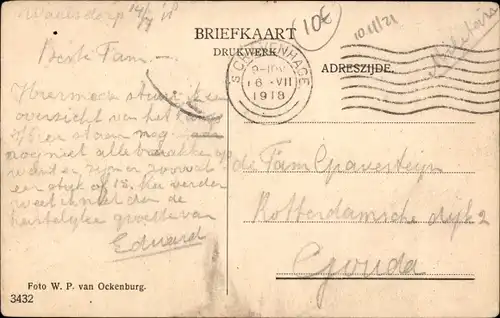 Waalsdorp 14/7 '18
10€
10/11/21
BRIEFKAART
DRUKWERK
ADRESZIJDE.
'S GRAVENHAGE
6 VII
1918
Beste Fam. —
Hiermee stuur ik een
overzicht van het
Hier staan nog
nog niet alle barakken op
want er zijn er zoowat
een stuk of 18. Nu verder
weet ik niet dan de
hartelijke groeten van
Eduard
de Fam Gravesteijn
Rotterdamsche dijk 2
Gouda
Foto W. P. van Ockenburg.
3432